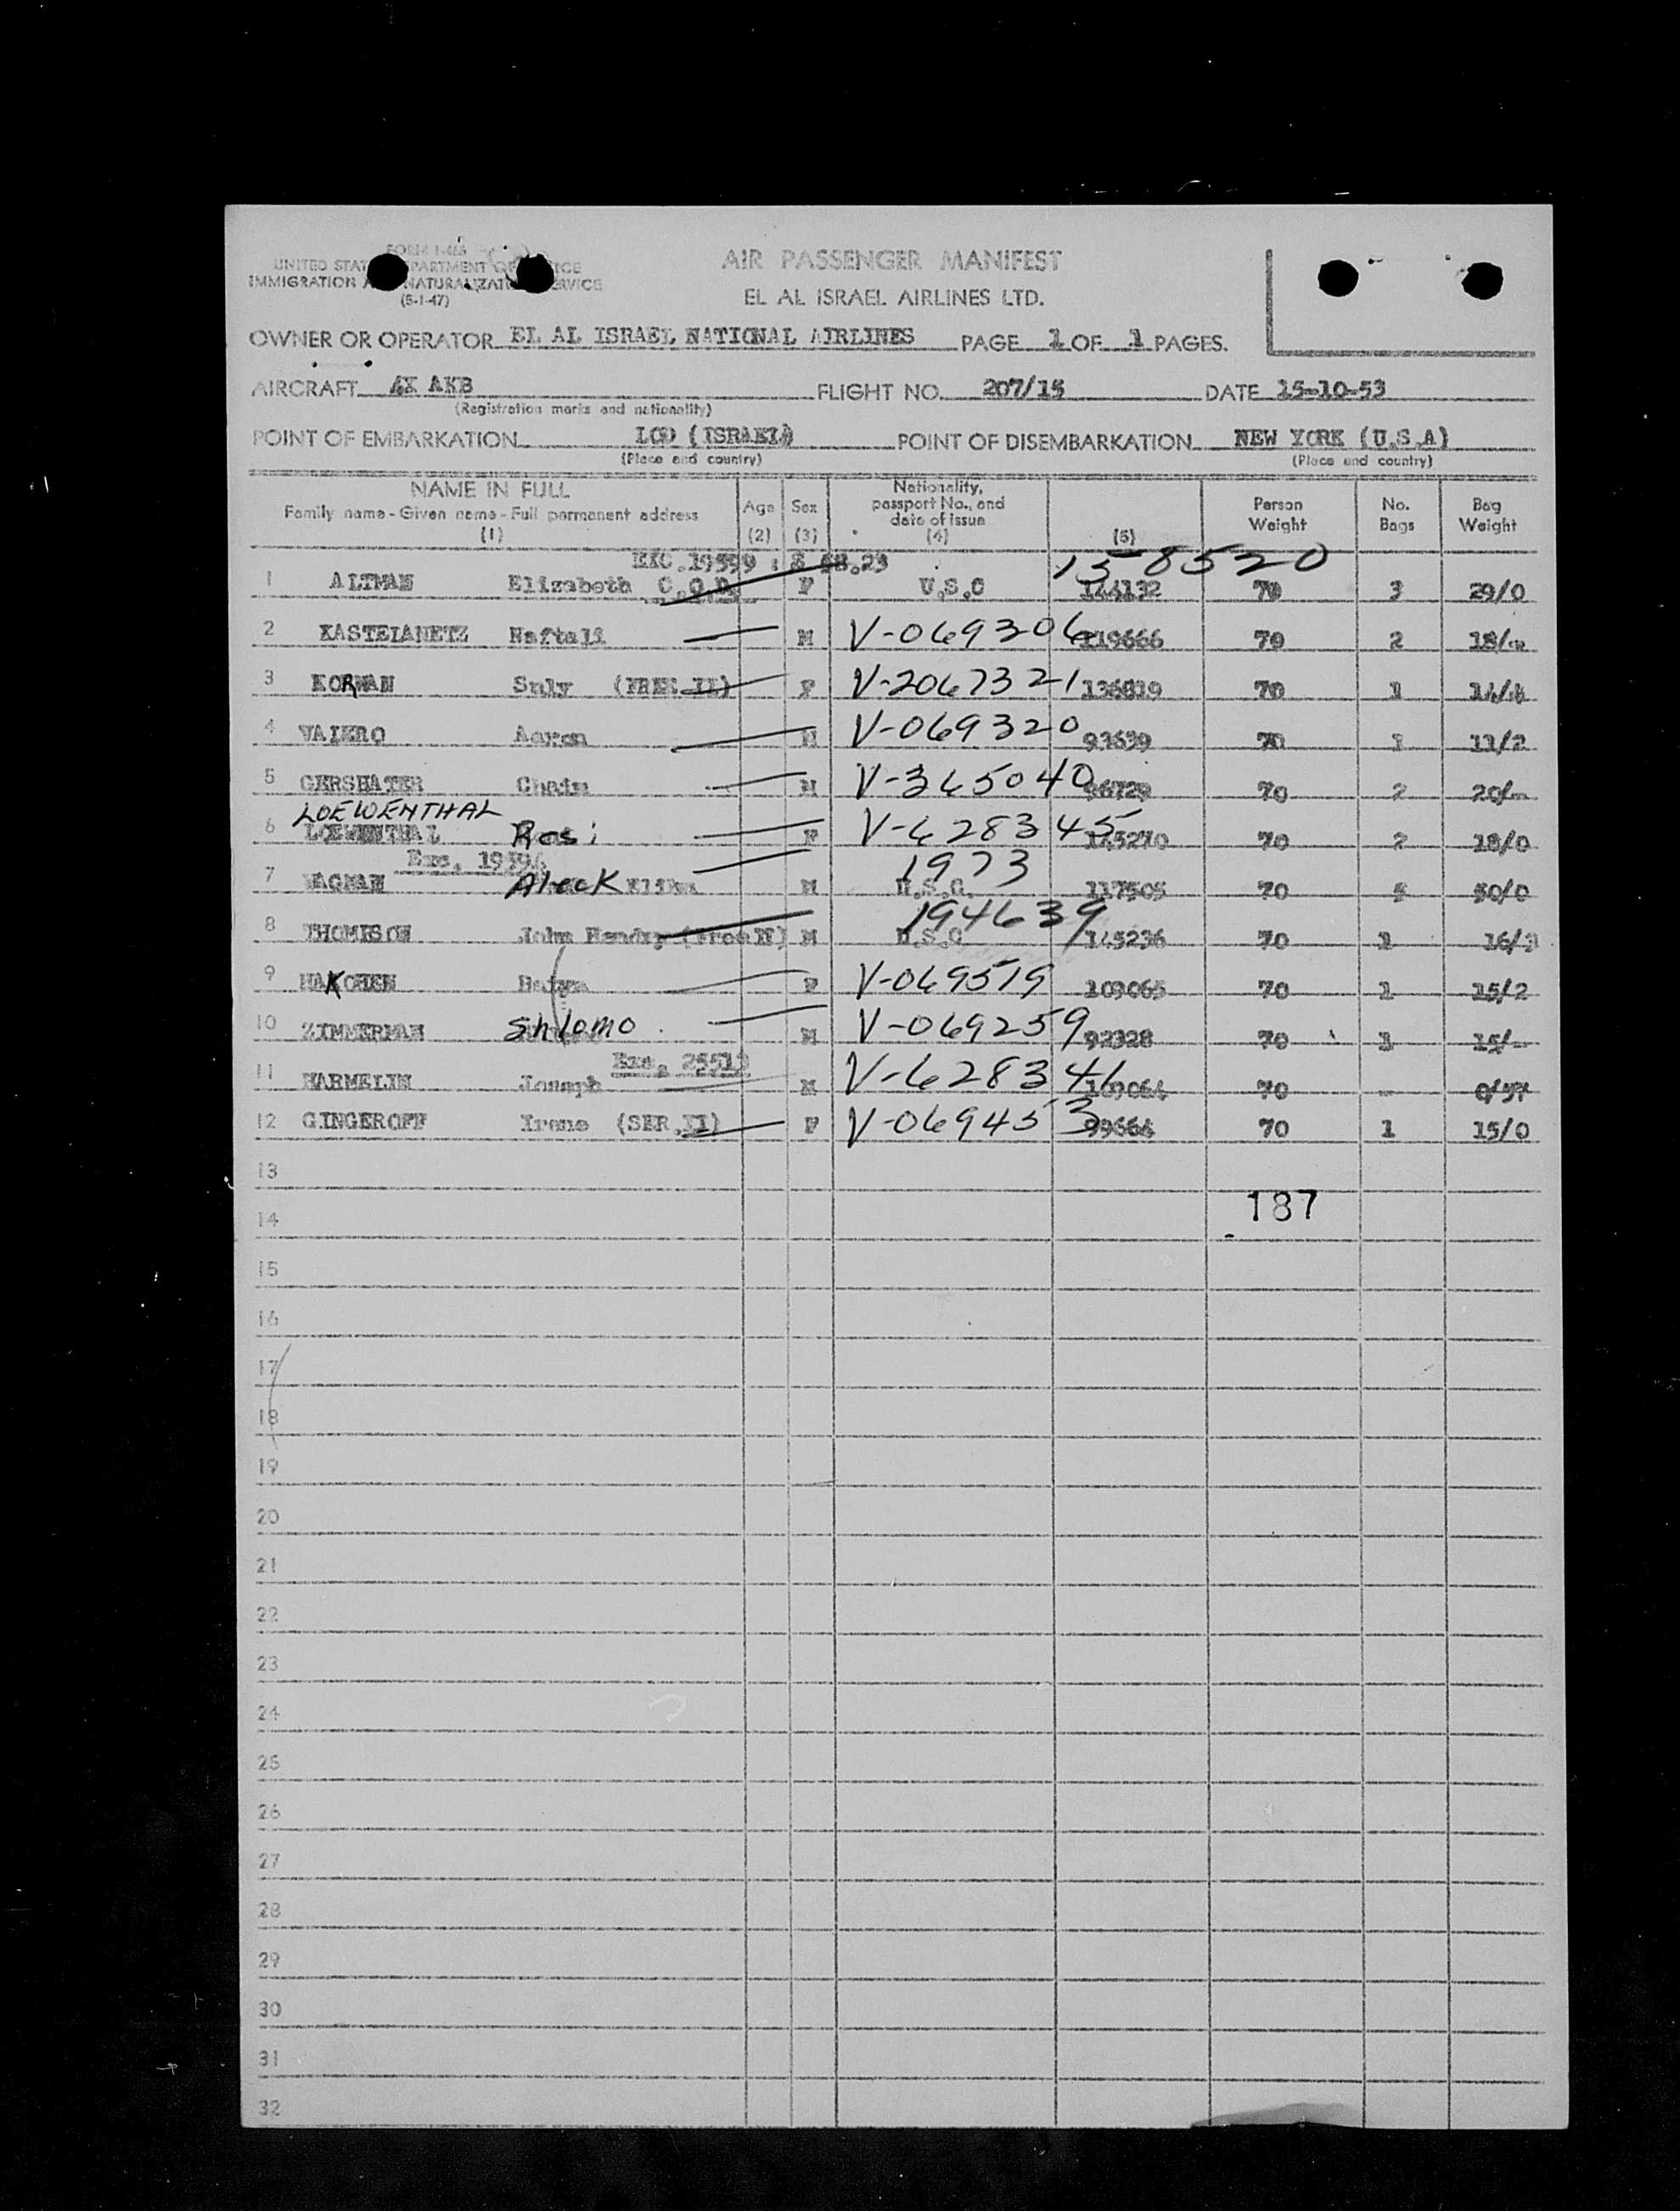 FORM I-466
UNITED STATES DEPARTMENT OF JUSTICE
IMMIGRATION AND NATURALIZATION SERVICE
(5-1-47)
AIR PASSENGER MANIFEST
EL AL ISRAEL AIRLINES LTD.
OWNER OR OPERATOR EL AL ISRAEL NATIONAL AIRLINES PAGE 1 OF 1 PAGES.
AIRCRAFT 4X AKB FLIGHT NO. 207/15 DATE 15-10-53
(Registration marks and nationality)
POINT OF EMBARKATION LOD (ISRAEL) POINT OF DISEMBARKATION NEW YORK (U.S.A)
(Place and country) (Place and country)
NAME IN FULL Age Sex Nationality, passport No., and date of issue Person Weight No. Bags Bag Weight
Family name - Given name - Full permanent address
(1) (2) (3) (4) (5)
EXC. 19599 : 158520
1 ALTMAN Elizabeth C.O.D. F U.S.C 144132 70 3 29/0
2 KASTELANETZ Naftali M V-069306 119666 70 2 18/-
3 KORMAN Suly F V-2067321 136819 70 1 14/4
4 VAIERO Aaron M V-069320 93639 70 1 11/2
5 GERSHATER Chaim M V-365040 96729 70 2 20/-
LOEWENTHAL
6 LOEWENTHAL Rosi F V-628345 145270 70 2 18/0
Exc. 19594 1973
7 WAGMAN Aleck M U.S.C. 117505 70 50/0
194639
8 THOMISON John Hendry M U.S.C 145236 70 1 16/
9 HAKOHEN F V-069519 109065 70 1 15/2
10 ZIMMERMAN Shlomo M V-069259 92328 70 1 15/-
Exc. 25513
11 HARMELIN Joseph M V-628341 109064 70 -
12 GINGEROFF Irene (SER.XI) F V-069453 99664 70 1 15/0
13
187
14
15
16
17
18
19
20
21
22
23
24
25
26
27
28
29
30
31
32